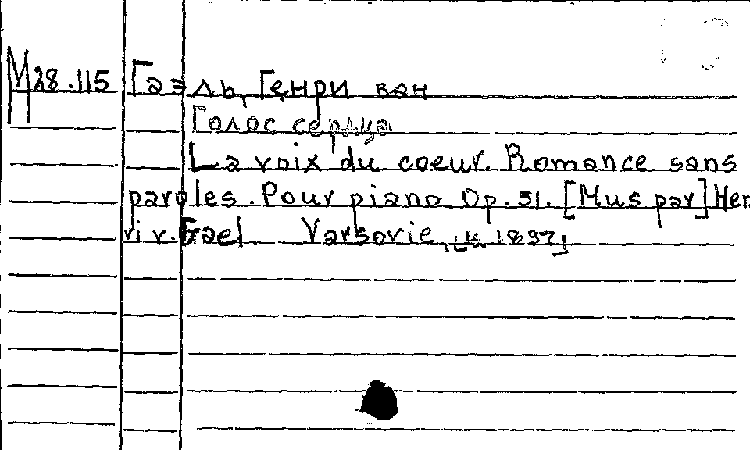 М28.115 Гаэль, Генри ван
Голос сердца
La voix du coeur. Romance sans
paroles. Pour piano Op. 51. [Mus par] Hen
ri v. Gael Varsovie, 1897]